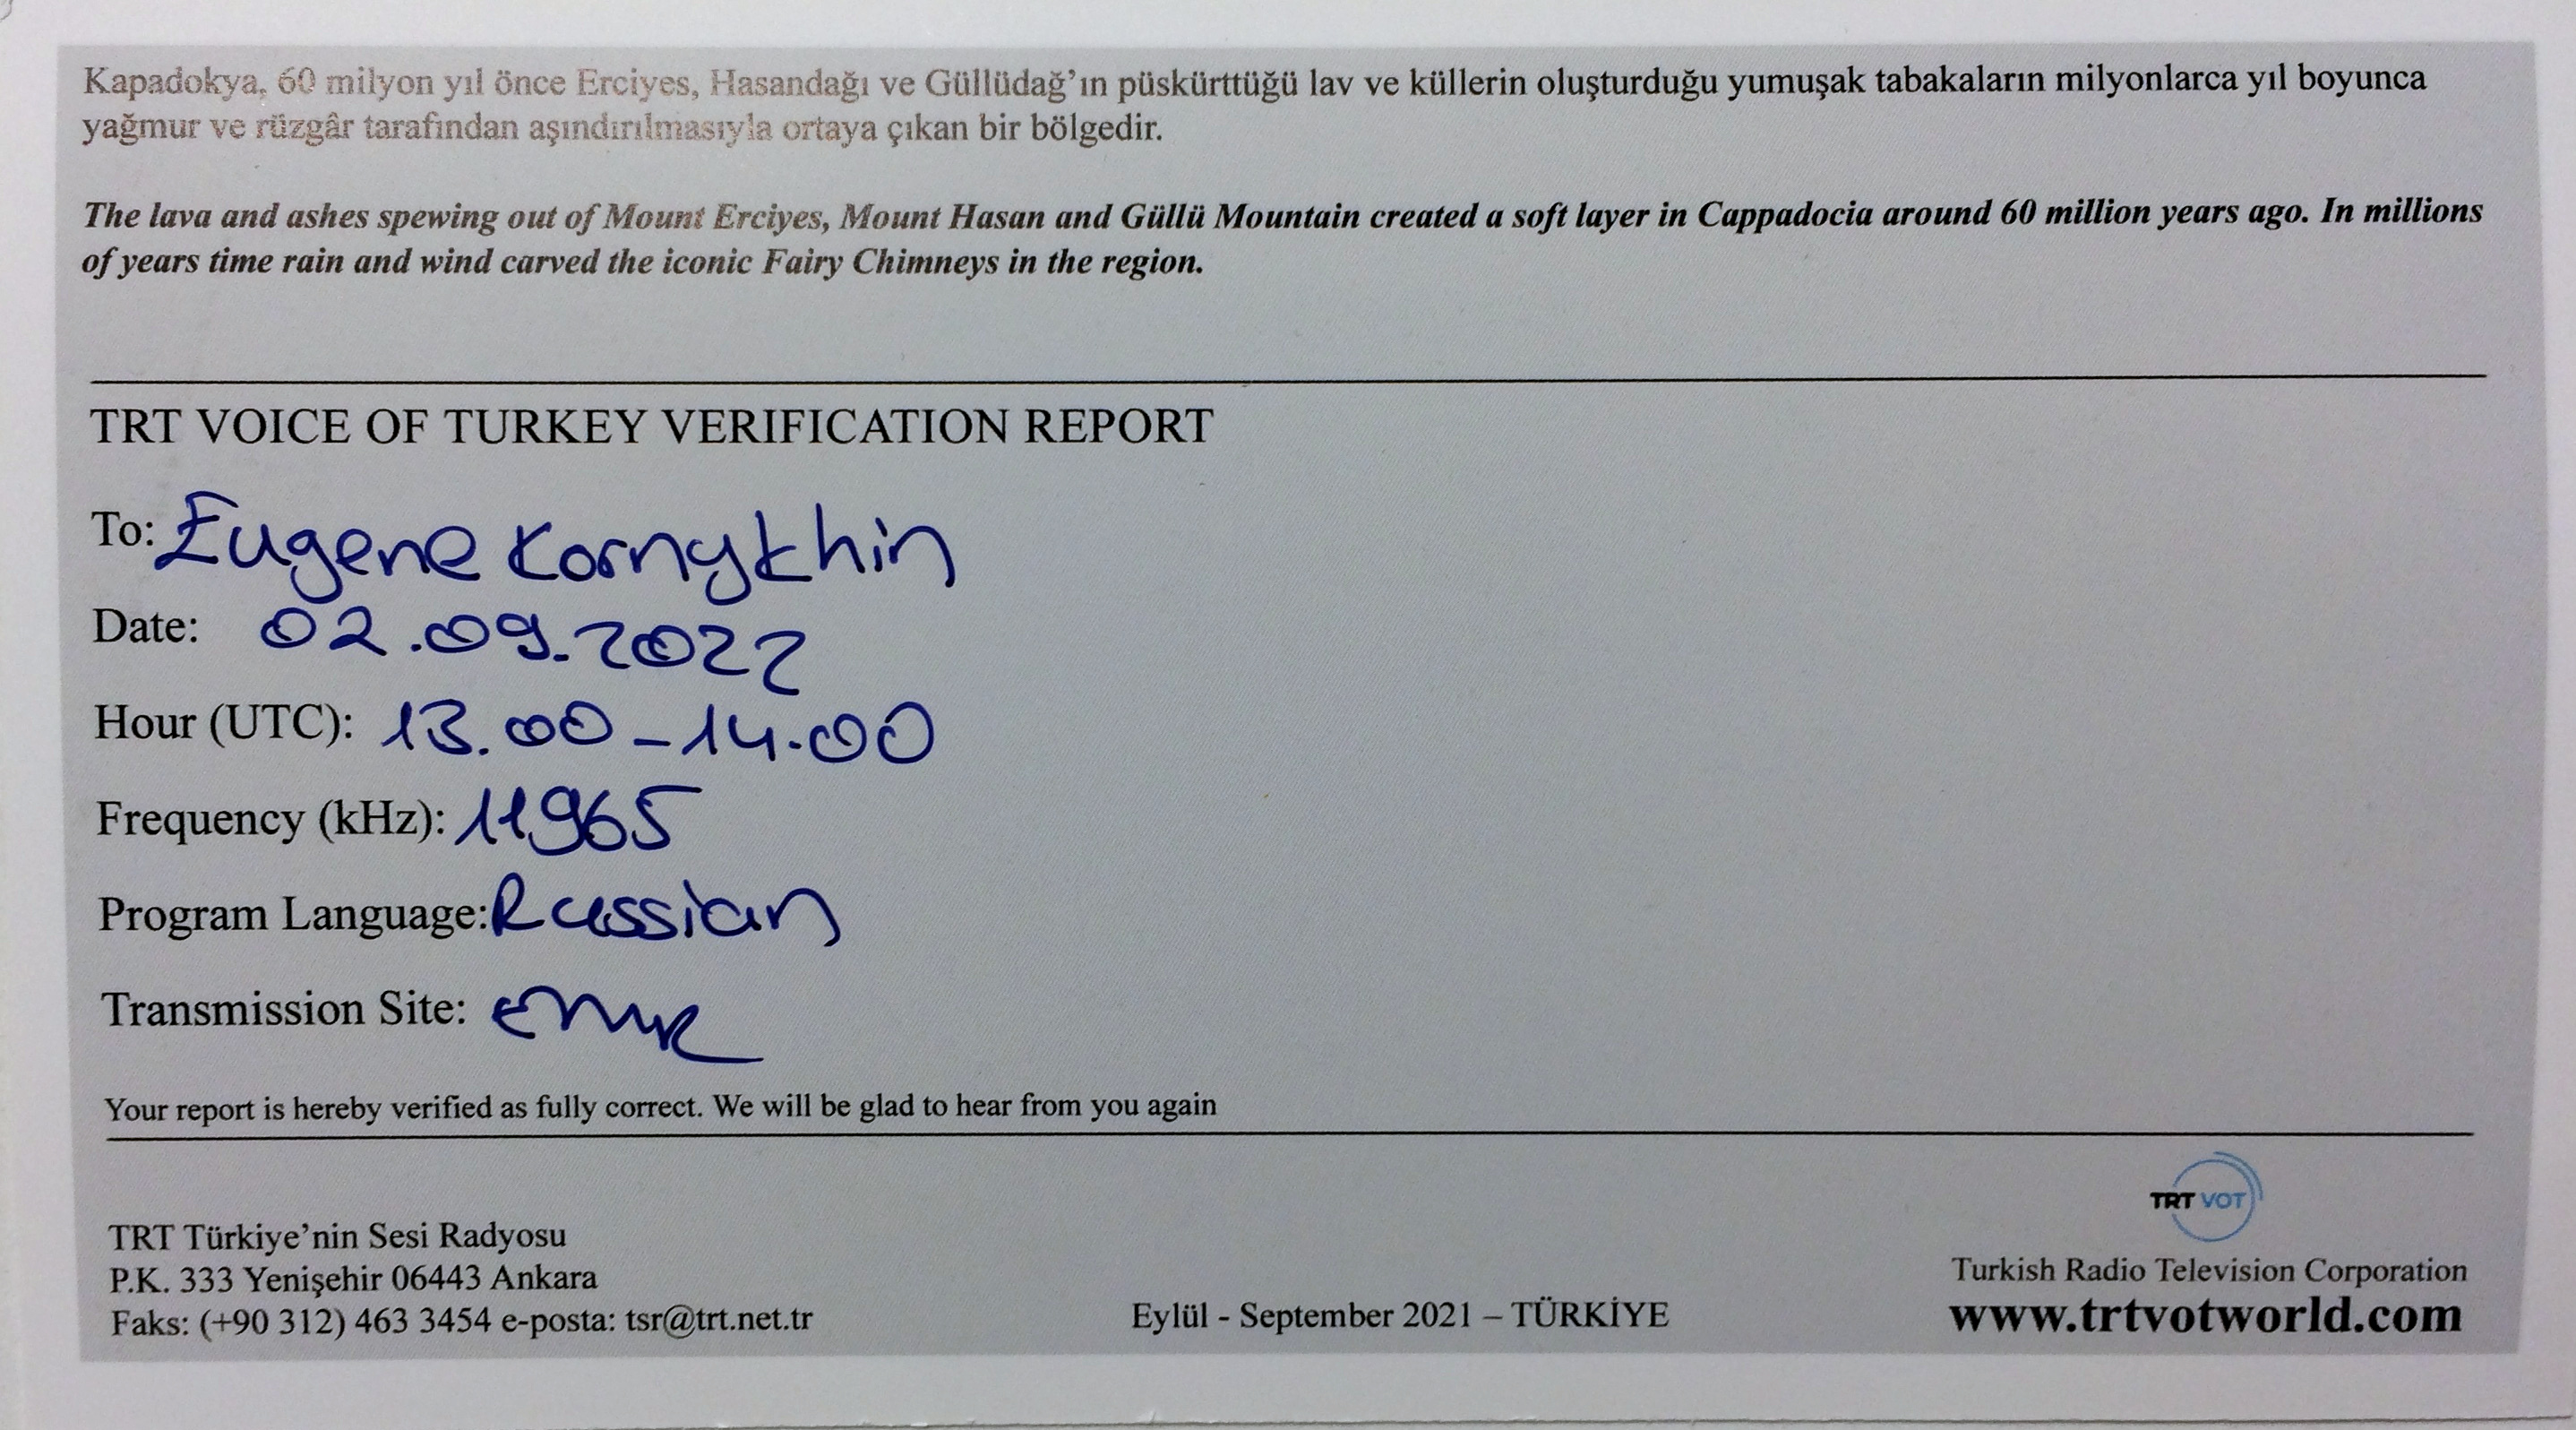 Kapadokya, 60 milyon yıl önce Erciyes, Hasandağı ve Güllüdağ’ın püskürttüğü lav ve küllerin oluşturduğu yumuşak tabakaların milyonlarca yıl boyunca
yağmur ve rüzgâr tarafından aşındırılmasıyla ortaya çıkan bir bölgedir.
The lava and ashes spewing out of Mount Erciyes, Mount Hasan and Güllü Mountain created a soft layer in Cappadocia around 60 million years ago. In millions
of years time rain and wind carved the iconic Fairy Chimneys in the region.
TRT VOICE OF TURKEY VERIFICATION REPORT
To: Eugene Kornykhin
Date: 02.09.2022
Hour (UTC): 13.00-14.00
Frequency (kHz): 11965
Program Language: Russian
Transmission Site: EMR
Your report is hereby verified as fully correct. We will be glad to hear from you again
TRT VOT
TRT Türkiye’nin Sesi Radyosu
P.K. 333 Yenişehir 06443 Ankara
Faks: (+90 312) 463 3454 e-posta: tsr@trt.net.tr
Eylül - September 2021 – TÜRKİYE
Turkish Radio Television Corporation
www.trtvotworld.com